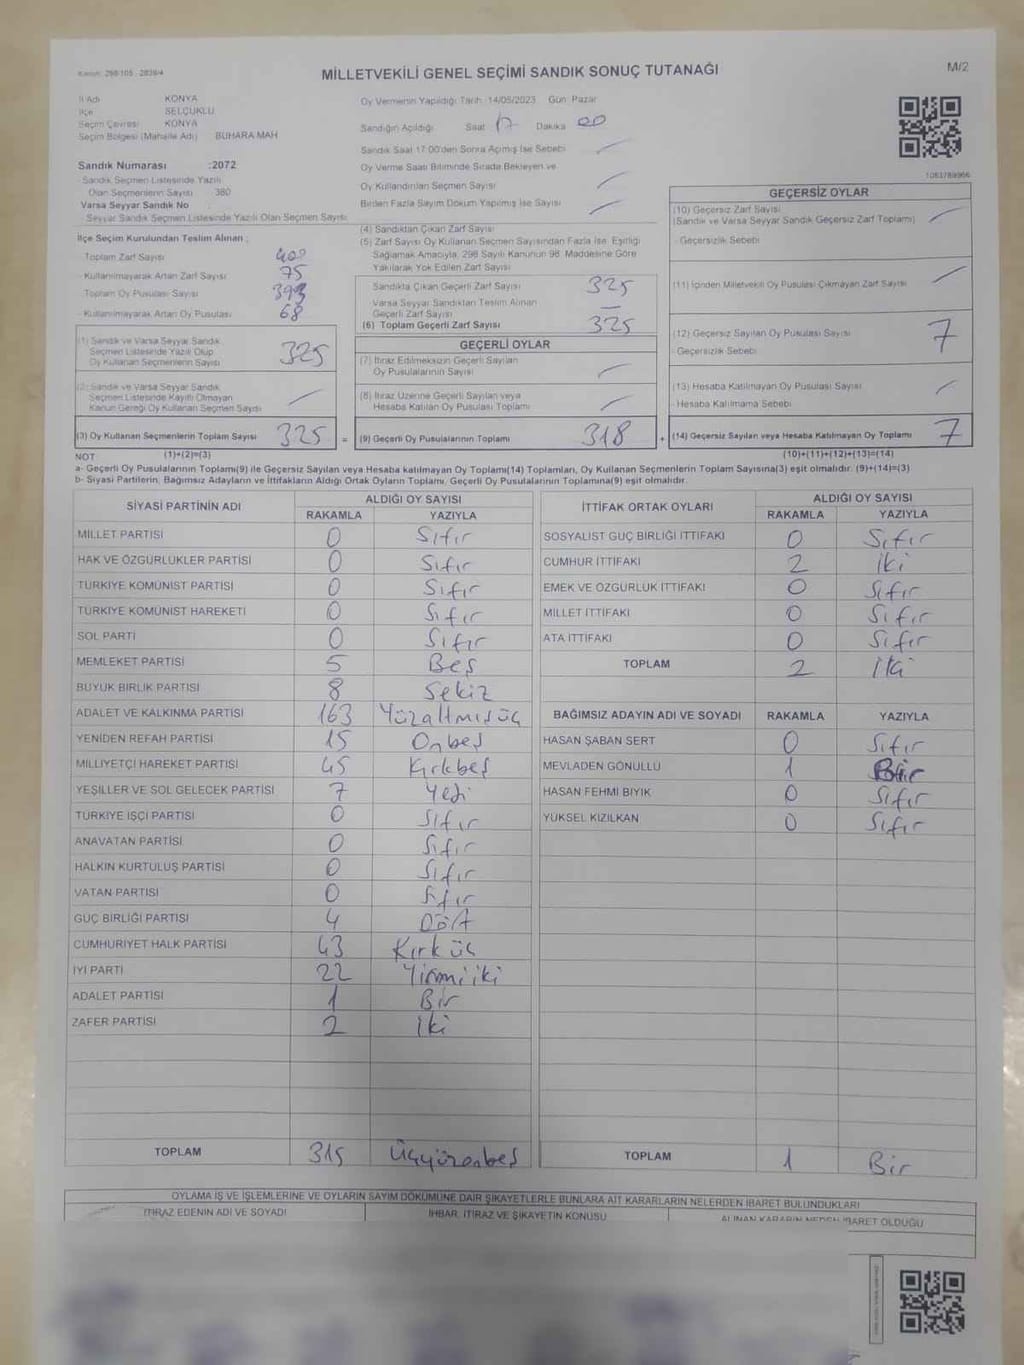 Kanun: 298/105 - 2839/4
MİLLETVEKİLİ GENEL SEÇİMİ SANDIK SONUÇ TUTANAĞI
M/2
İl Adı KONYA
İlçe SELÇUKLU
Seçim Çevresi KONYA
Seçim Bölgesi (Mahalle Adı) BUHARA MAH
Sandık Numarası :2072
- Sandık Seçmen Listesinde Yazılı
Olan Seçmenlerin Sayısı 380
Varsa Seyyar Sandık No
Seyyar Sandık Seçmen Listesinde Yazılı Olan Seçmen Sayısı
Oy Vermenin Yapıldığı Tarih :14/05/2023 Gün: Pazar
Sandığın Açıldığı Saat 17 Dakika 00
Sandık Saat 17:00'den Sonra Açımış İse Sebebi
Oy Verme Saati Bitiminde Sırada Bekleyen ve
Oy Kullandırılan Seçmen Sayısı
Birden Fazla Sayım Döküm Yapılmış İse Sayısı
1083789966
İlçe Seçim Kurulundan Teslim Alınan ;
Toplam Zarf Sayısı 400
- Kullanılmayarak Artan Zarf Sayısı 75
Toplam Oy Pusulası Sayısı 393
- Kullanılmayarak Artan Oy Pusulası 68
(1) Sandık ve Varsa Seyyar Sandık
Seçmen Listesinde Yazılı Olup
Oy Kullanan Seçmenlerin Sayısı 325
(2) Sandık ve Varsa Seyyar Sandık
Seçmen Listesinde Kayıtlı Olmayan
Kanun Gereği Oy Kullanan Seçmen Sayısı
(3) Oy Kullanan Seçmenlerin Toplam Sayısı 325 =
(1)+(2)=(3)
(4) Sandıktan Çıkan Zarf Sayısı
(5) Zarf Sayısı Oy Kullanan Seçmen Sayısından Fazla İse, Eşitliği
Sağlamak Amacıyla, 298 Sayılı Kanunun 98. Maddesine Göre
Yakılarak Yok Edilen Zarf Sayısı
Sandıkta Çıkan Geçerli Zarf Sayısı 325
Varsa Seyyar Sandıktan Teslim Alınan
Geçerli Zarf Sayısı
(6) Toplam Geçerli Zarf Sayısı 325
GEÇERLİ OYLAR
(7) İtiraz Edilmeksizin Geçerli Sayılan
Oy Pusulalarının Sayısı
(8) İtiraz Üzerine Geçerli Sayılan veya
Hesaba Katılan Oy Pusulası Toplamı
(9) Geçerli Oy Pusulalarının Toplamı 318 +
GEÇERSİZ OYLAR
(10) Geçersiz Zarf Sayısı
(Sandık ve Varsa Seyyar Sandık Geçersiz Zarf Toplamı)
- Geçersizlik Sebebi
(11) İçinden Milletvekili Oy Pusulası Çıkmayan Zarf Sayısı
(12) Geçersiz Sayılan Oy Pusulası Sayısı 7
- Geçersizlik Sebebi:
(13) Hesaba Katılmayan Oy Pusulası Sayısı
- Hesaba Katılmama Sebebi
(14) Geçersiz Sayılan veya Hesaba Katılmayan Oy Toplamı 7
(10)+(11)+(12)+(13)=(14)
NOT
a- Geçerli Oy Pusulalarının Toplamı(9) ile Geçersiz Sayılan veya Hesaba katılmayan Oy Toplamı(14) Toplamları, Oy Kullanan Seçmenlerin Toplam Sayısına(3) eşit olmalıdır. (9)+(14)=(3)
b- Siyasi Partilerin, Bağımsız Adayların ve İttifakların Aldığı Ortak Oyların Toplamı, Geçerli Oy Pusulalarının Toplamına(9) eşit olmalıdır.
SİYASİ PARTİNİN ADI ALDIĞI OY SAYISI
RAKAMLA YAZIYLA
MİLLET PARTİSİ 0 Sıfır
HAK VE ÖZGÜRLÜKLER PARTİSİ 0 Sıfır
TÜRKİYE KOMÜNİST PARTİSİ 0 Sıfır
TÜRKİYE KOMÜNİST HAREKETİ 0 Sıfır
SOL PARTİ 0 Sıfır
MEMLEKET PARTİSİ 5 Beş
BÜYÜK BİRLİK PARTİSİ 8 Sekiz
ADALET VE KALKINMA PARTİSİ 163 Yüzaltmışüç
YENİDEN REFAH PARTİSİ 15 Onbeş
MİLLİYETÇİ HAREKET PARTİSİ 45 Kırkbeş
YEŞİLLER VE SOL GELECEK PARTİSİ 7 Yedi
TÜRKİYE İŞÇİ PARTİSİ 0 Sıfır
ANAVATAN PARTİSİ 0 Sıfır
HALKIN KURTULUŞ PARTİSİ 0 Sıfır
VATAN PARTİSİ 0 Sıfır
GÜÇ BİRLİĞİ PARTİSİ 4 Dört
CUMHURİYET HALK PARTİSİ 43 Kırk üç
İYİ PARTİ 22 Yirmiiki
ADALET PARTİSİ 1 Bir
ZAFER PARTİSİ 2 İki
TOPLAM 315 Üçyüzonbeş
İTTİFAK ORTAK OYLARI ALDIĞI OY SAYISI
RAKAMLA YAZIYLA
SOSYALİST GÜÇ BİRLİĞİ İTTİFAKI 0 Sıfır
CUMHUR İTTİFAKI 2 İki
EMEK VE ÖZGÜRLÜK İTTİFAKI 0 Sıfır
MİLLET İTTİFAKI 0 Sıfır
ATA İTTİFAKI 0 Sıfır
TOPLAM 2 İki
BAĞIMSIZ ADAYIN ADI VE SOYADI RAKAMLA YAZIYLA
HASAN ŞABAN SERT 0 Sıfır
MEVLADEN GÖNÜLLÜ 1 Bir
HASAN FEHMİ BIYIK 0 Sıfır
YÜKSEL KIZILKAN 0 Sıfır
TOPLAM 1 Bir
OYLAMA İŞ VE İŞLEMLERİNE VE OYLARIN SAYIM DÖKÜMÜNE DAİR ŞİKAYETLERLE BUNLARA AİT KARARLARIN NELERDEN İBARET BULUNDUKLARI
İTİRAZ EDENİN ADI VE SOYADI İHBAR, İTİRAZ VE ŞİKAYETİN KONUSU ALINAN KARARIN NEDEN İBARET OLDUĞU